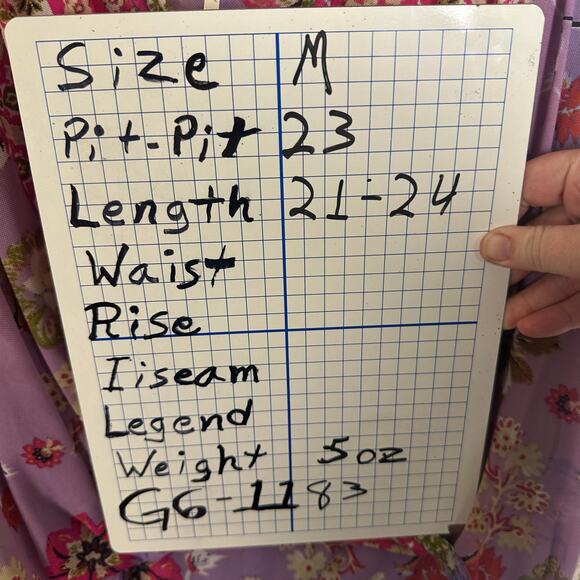 Size M
Pit-Pit 23
Length 21-24
Waist
Rise
Iiseam
Legend
Weight 5oz
G6-1183